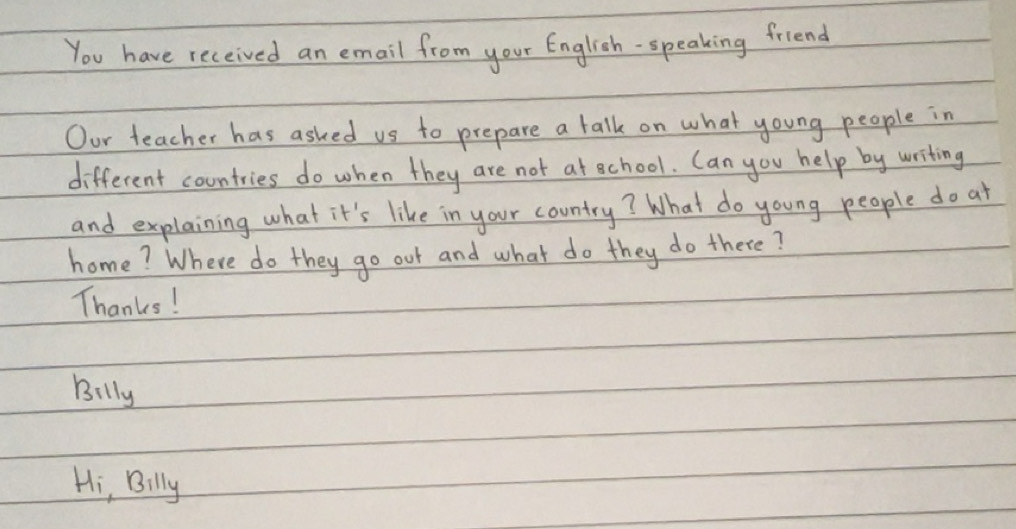 You have received an email from your English-speaking friend
Our teacher has asked us to prepare a talk on what young people in
different countries do when they are not at school. Can you help by writing
and explaining what it's like in your country? What do young people do at
home? Where do they go out and what do they do there?
Thanks!
Billy
Hi, Billy